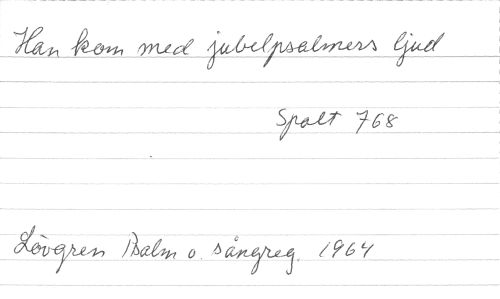 Han kom med jubelpsalmers ljud
Spalt 768
Lövgren Psalm o. sångreg. 1964